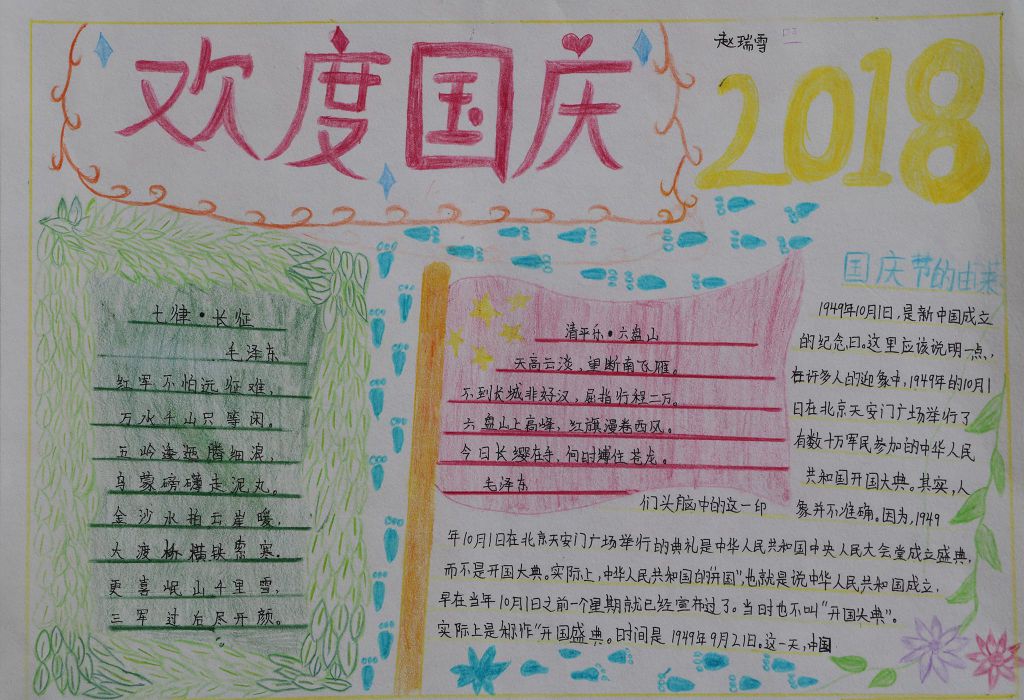 欢度国庆
赵瑞雪
2018
七律·长征
毛泽东
红军不怕远征难，
万水千山只等闲。
五岭逶迤腾细浪，
乌蒙磅礴走泥丸。
金沙水拍云崖暖，
大渡桥横铁索寒。
更喜岷山千里雪，
三军过后尽开颜。
清平乐·六盘山
天高云淡，望断南飞雁。
不到长城非好汉，屈指行程二万。
六盘山上高峰，红旗漫卷西风。
今日长缨在手，何时缚住苍龙。
毛泽东
国庆节的由来
1949年10月1日，是新中国成立
的纪念日。这里应该说明一点，
在许多人的印象中，1949年的10月1
日在北京天安门广场举行了
有数十万军民参加的中华人民
共和国开国大典。其实，人
们头脑中的这一印
象并不准确。因为，1949
年10月1日在北京天安门广场举行的典礼是中华人民共和国中央人民大会堂成立盛典，
而不是开国大典。实际上，中华人民共和国的"开国"，也就是说中华人民共和国成立，
早在当年10月1日之前一个星期前就已经宣布过了。当时也不叫"开国大典"。
实际上是称作"开国盛典。时间是1949年9月21日。这一天，中国